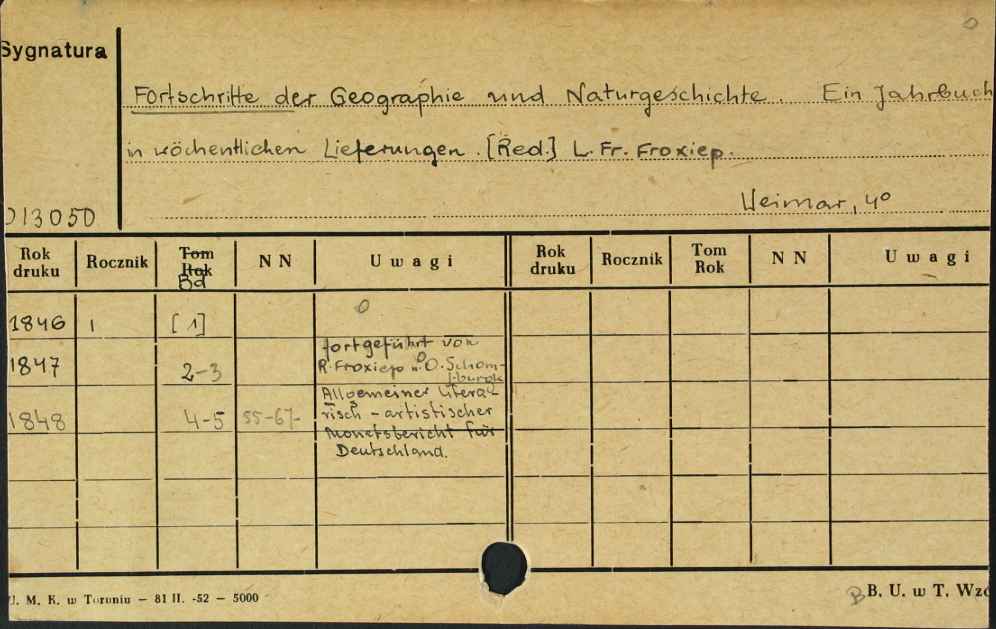 Sygnatura
Fortschritte der Geographie und Naturgeschichte. Ein Jahrbuch
in wöchentlichen Lieferungen. [Red.] L. Fr. Froxiep.
Weimar, 4°
013050
Rok druku Rocznik Tom Rok Bd N N Uwagi Rok druku Rocznik Tom Rok N N Uwagi
1846 1 [1]
1847 2-3 fortgeführt von
R. Froxiep u. O. Schom-
burgk
1848 4-5 55-67- Allgemeiner litera-
risch-artistischer
Monatsbericht für
Deutschland.
U. M. K. w Toruniu – 81 II. -52 – 5000
B B. U. w T.